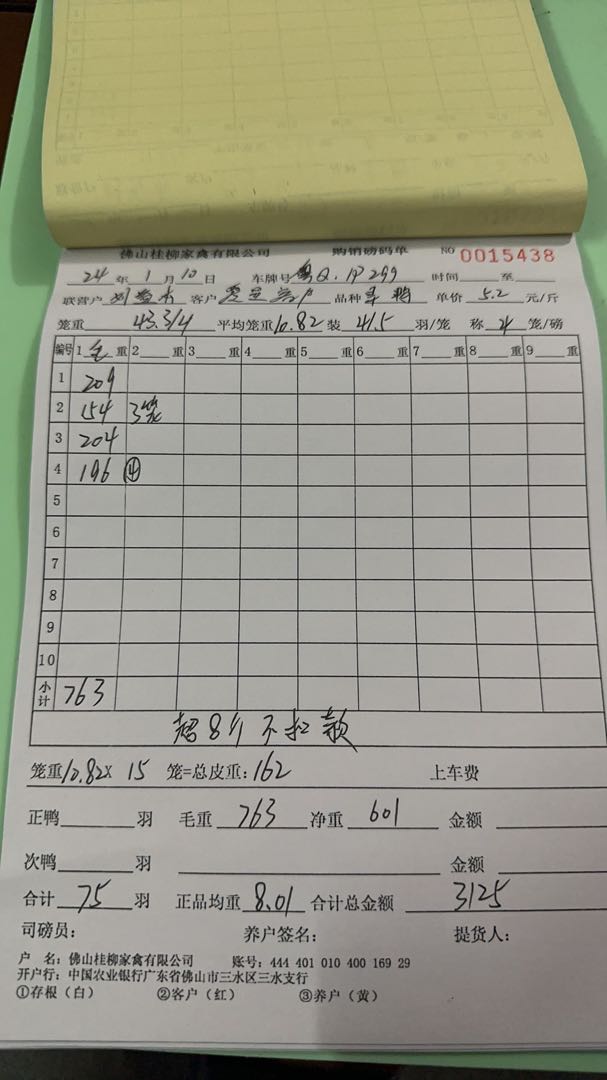 佛山桂柳家禽有限公司 购销磅码单 NO 0015438
24年 1月 10日 车牌号 粤Q·1P299 时间 至
联营户 客户 品种 单价 5.2 元/斤
笼重 43.3/4 平均笼重 10.82 装 41.5 羽/笼 称 4 笼/磅
编号 1 毛 重 2 重 3 重 4 重 5 重 6 重 7 重 8 重 9 重
1 209
2 154 3笼
3 204
4 196 ④
5
6
7
8
9
10
小计 763
超8斤不扣款
笼重 10.82 × 15 笼=总皮重: 162 上车费
正鸭 羽 毛重 763 净重 601 金额
次鸭 羽 金额
合计 75 羽 正品均重 8.01 合计总金额 3125
司磅员: 养户签名: 提货人:
户 名: 佛山桂柳家禽有限公司 账号: 444 401 010 400 169 29
开户行: 中国农业银行广东省佛山市三水区三水支行
①存根(白) ②客户(红) ③养户(黄)